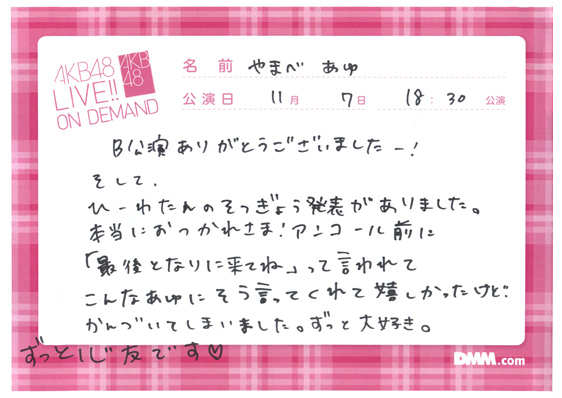 AKB48
LIVE!!
ON DEMAND
AKB
48
名前 やまべ あゆ
公演日 11月 7日 18:30 公演
B公演ありがとうございましたー!
そして、
ひーわたんのそつぎょう発表がありました。
本当におつかれさま!アンコール前に
「最後となりに来てね」って言われて
こんなあゆにそう言ってくれて嬉しかったけど
かんづいてしまいました。ずっと大好き。
ずっといじ友です♡
DMM.com